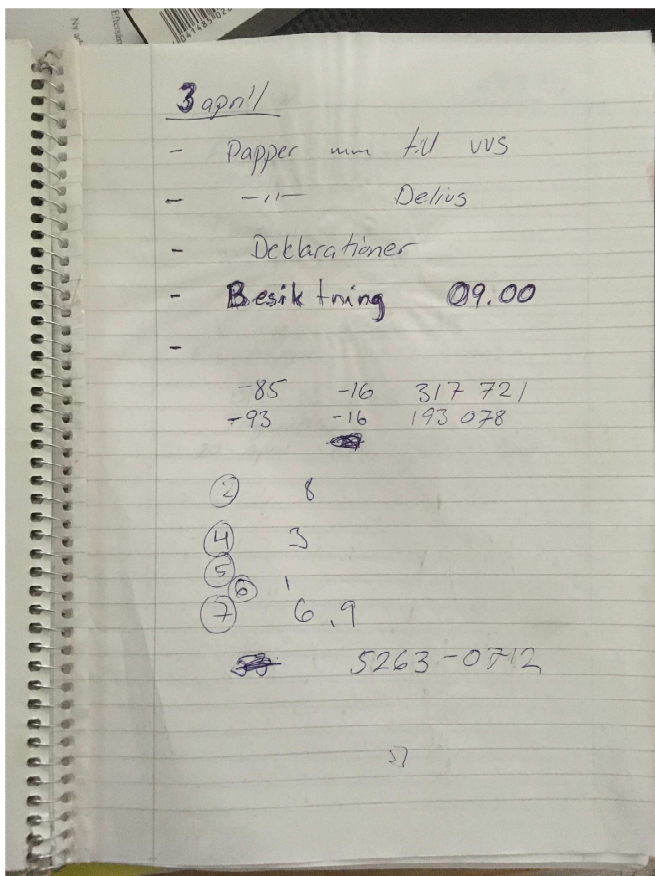 Eftersän
Ny ad
3 april
- Papper mm till VVS
- -"- Delius
- Deklarationer
- Besiktning 09.00
-
-85 -16 317 721
-93 -16 193 078
② 8
④ 3
⑤
⑥ 1
⑦ 6,9
5263-0712